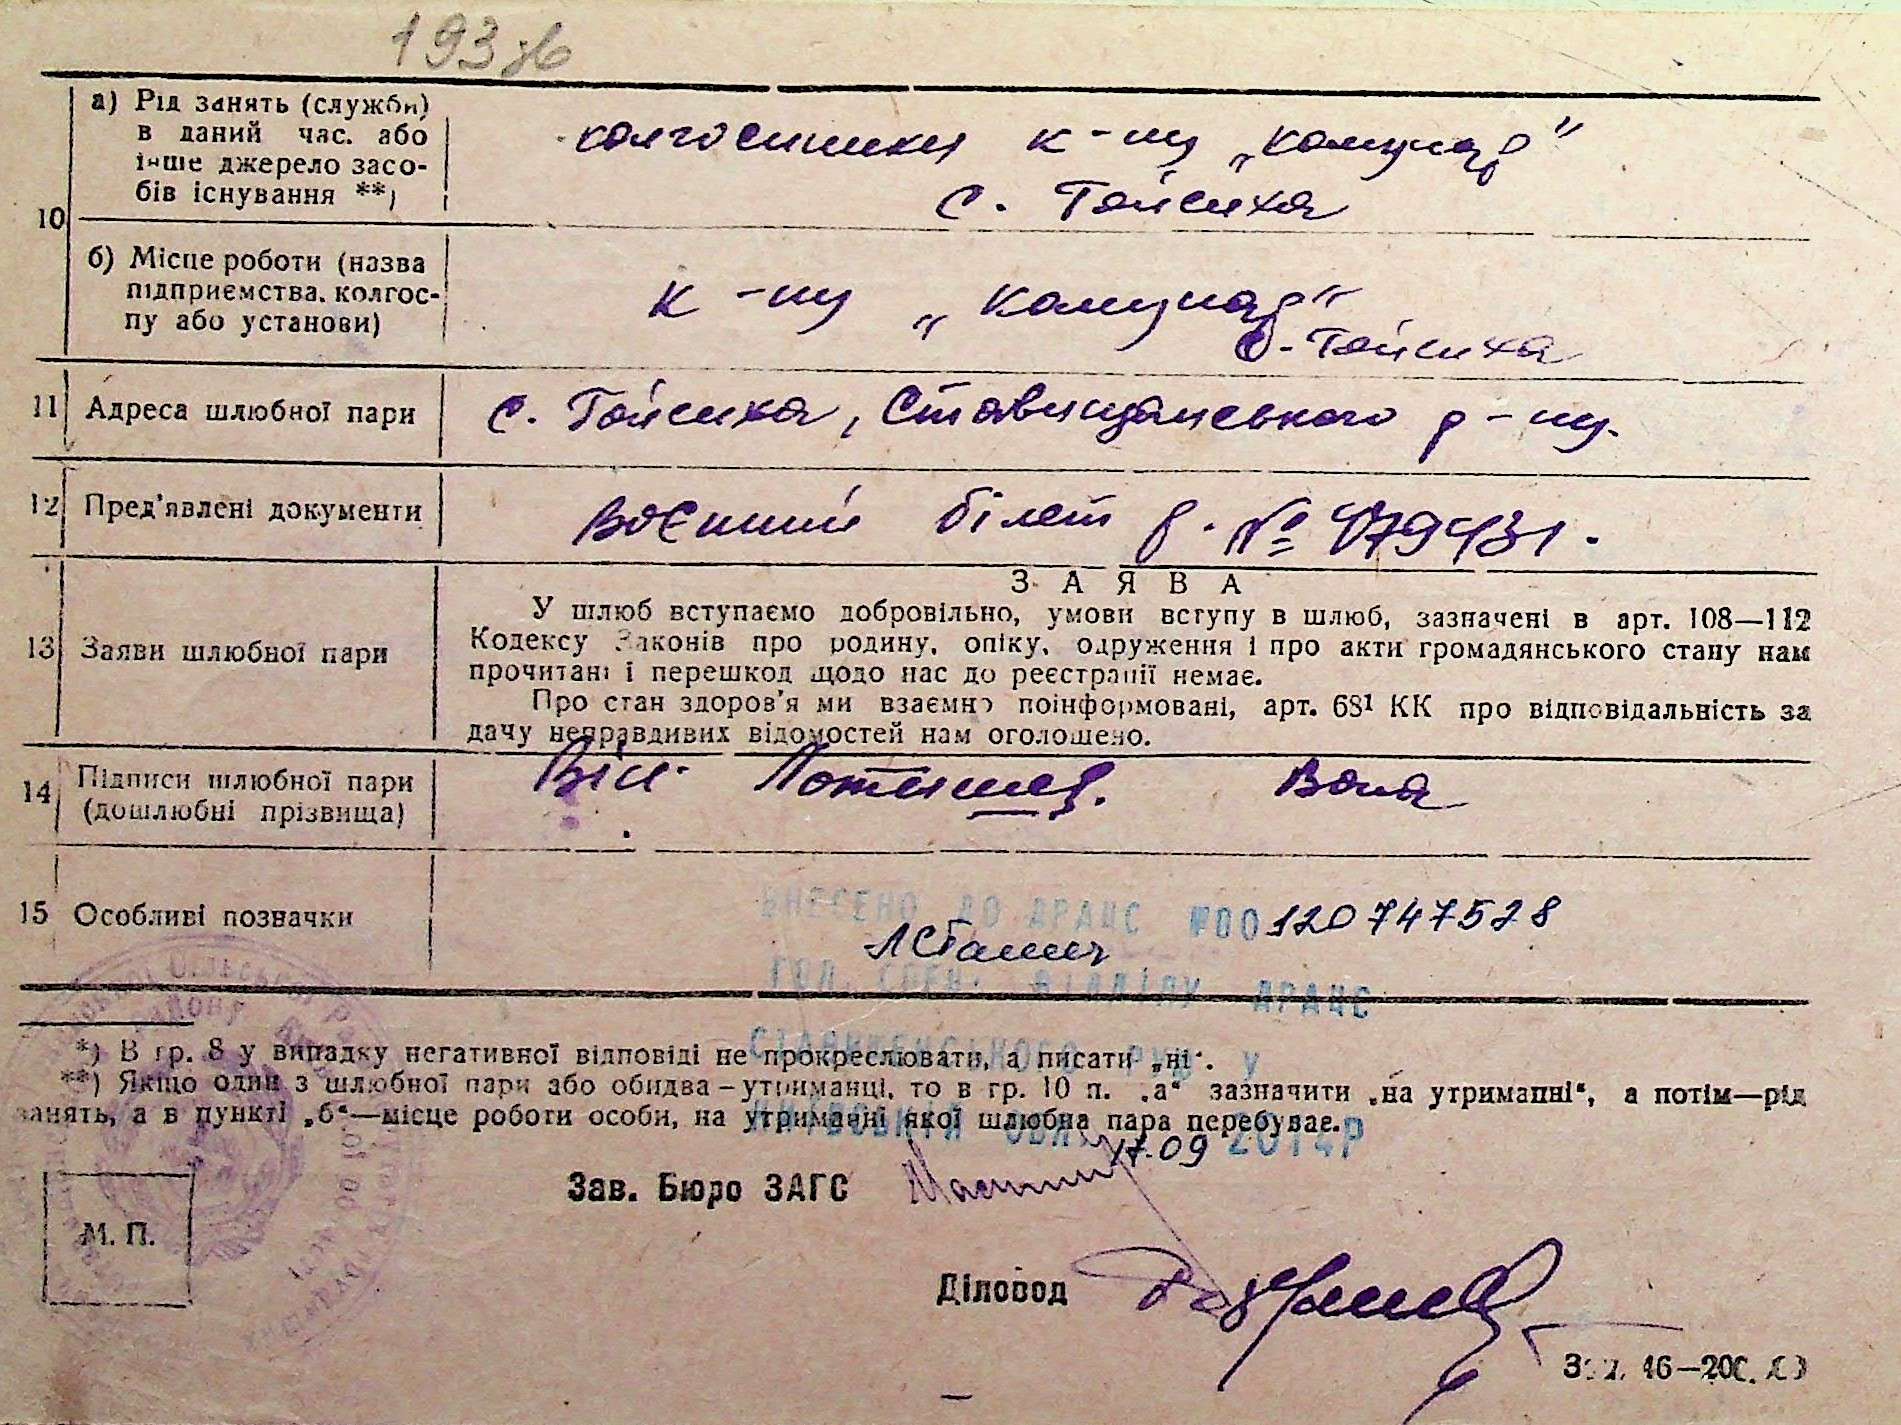 193зв
10
а) Рід занять (служби)
в даний час. або
інше джерело засо-
бів існування **)
колгоспники к-пу „Комунар"
с. Гейсиха
б) Місце роботи (назва
підприємства. колгос-
пу або установи)
к-пу „Комунар"
с. Гейсиха
11 Адреса шлюбної пари
с. Гейсиха, Ставищанського р-ну.
12 Пред'явлені документи
Воєнний білет № 479431.
13 Заяви шлюбної пари
ЗАЯВА
У шлюб вступаємо добровільно, умови вступу в шлюб, зазначені в арт. 108—112
Кодексу Законів про родину, опіку, одруження і про акти громадянського стану нам
прочитані і перешкод щодо нас до реєстрації немає.
Про стан здоров'я ми взаємно поінформовані, арт. 68¹ КК про відповідальність за
дачу неправдивих відомостей нам оголошено.
14 Підписи шлюбної пари
(дошлюбні прізвища)
Він Вона
15 Особливі позначки
ВНЕСЕНО ДО ДРАЦС №00120747528
ГОЛ. СПЕЦ. ВІДДІЛУ ДРАЦС
*) В гр. 8 у випадку негативної відповіді не прокреслювати, а писати „ні".
СТАВИЩЕНСЬКОГО РУЮ У
**) Якщо один з шлюбної пари або обидва—утриманці, то в гр. 10 п. „а" зазначити „на утриманні", а потім—рід
занять, а в пункті „б"—місце роботи особи, на утриманні якої шлюбна пара перебуває.
КИЇВСЬКІЙ ОБЛ. 17.09 2014Р
Зав. Бюро ЗАГС
М. П.
Діловод